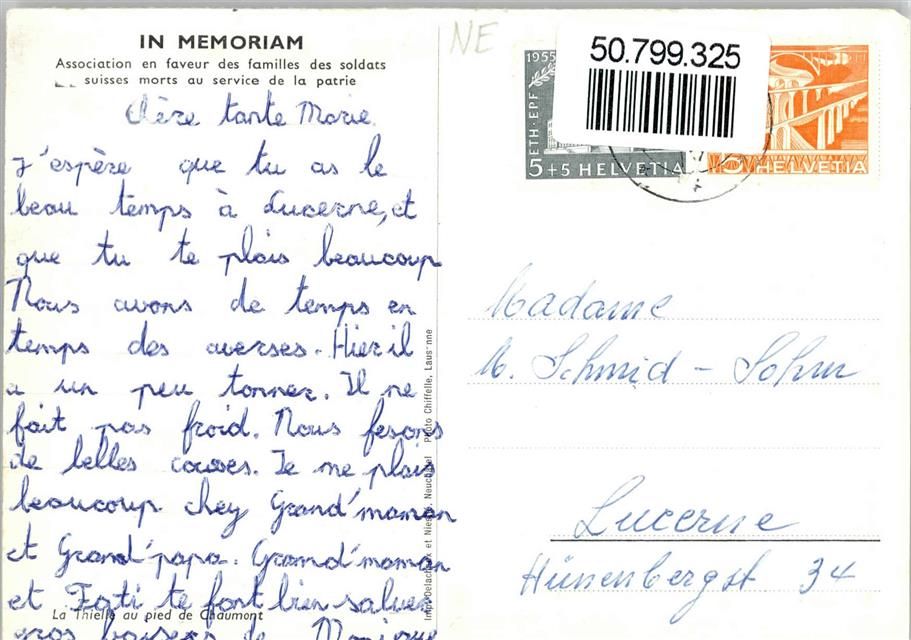 IN MEMORIAM
Association en faveur des familles des soldats
suisses morts au service de la patrie
Chère tante Marie.
J'espère que tu as le
beau temps à Lucerne, et
que tu te plais beaucoup
Nous avons de temps en
temps des averses. Hier il
a un peu tonner. Il ne
fait pas froid. Nous fesons
de belles courses. Je me plais
beaucoup chey Grand'maman
et Grand'papa. Grand'maman
et Fati te font bien saluer
gros baisers de Monique
La Thielle au pied de Chaumont
Photo Chiffelle, Lausanne
Imp. Delachaux et Niestlé, Neuchâtel
NE
50.799.325
1955
ETH·EPF
5+5 HELVETIA
5 HELVETIA
Madame
M. Schmid - Sohm
Lucerne
Hünenbergst 34